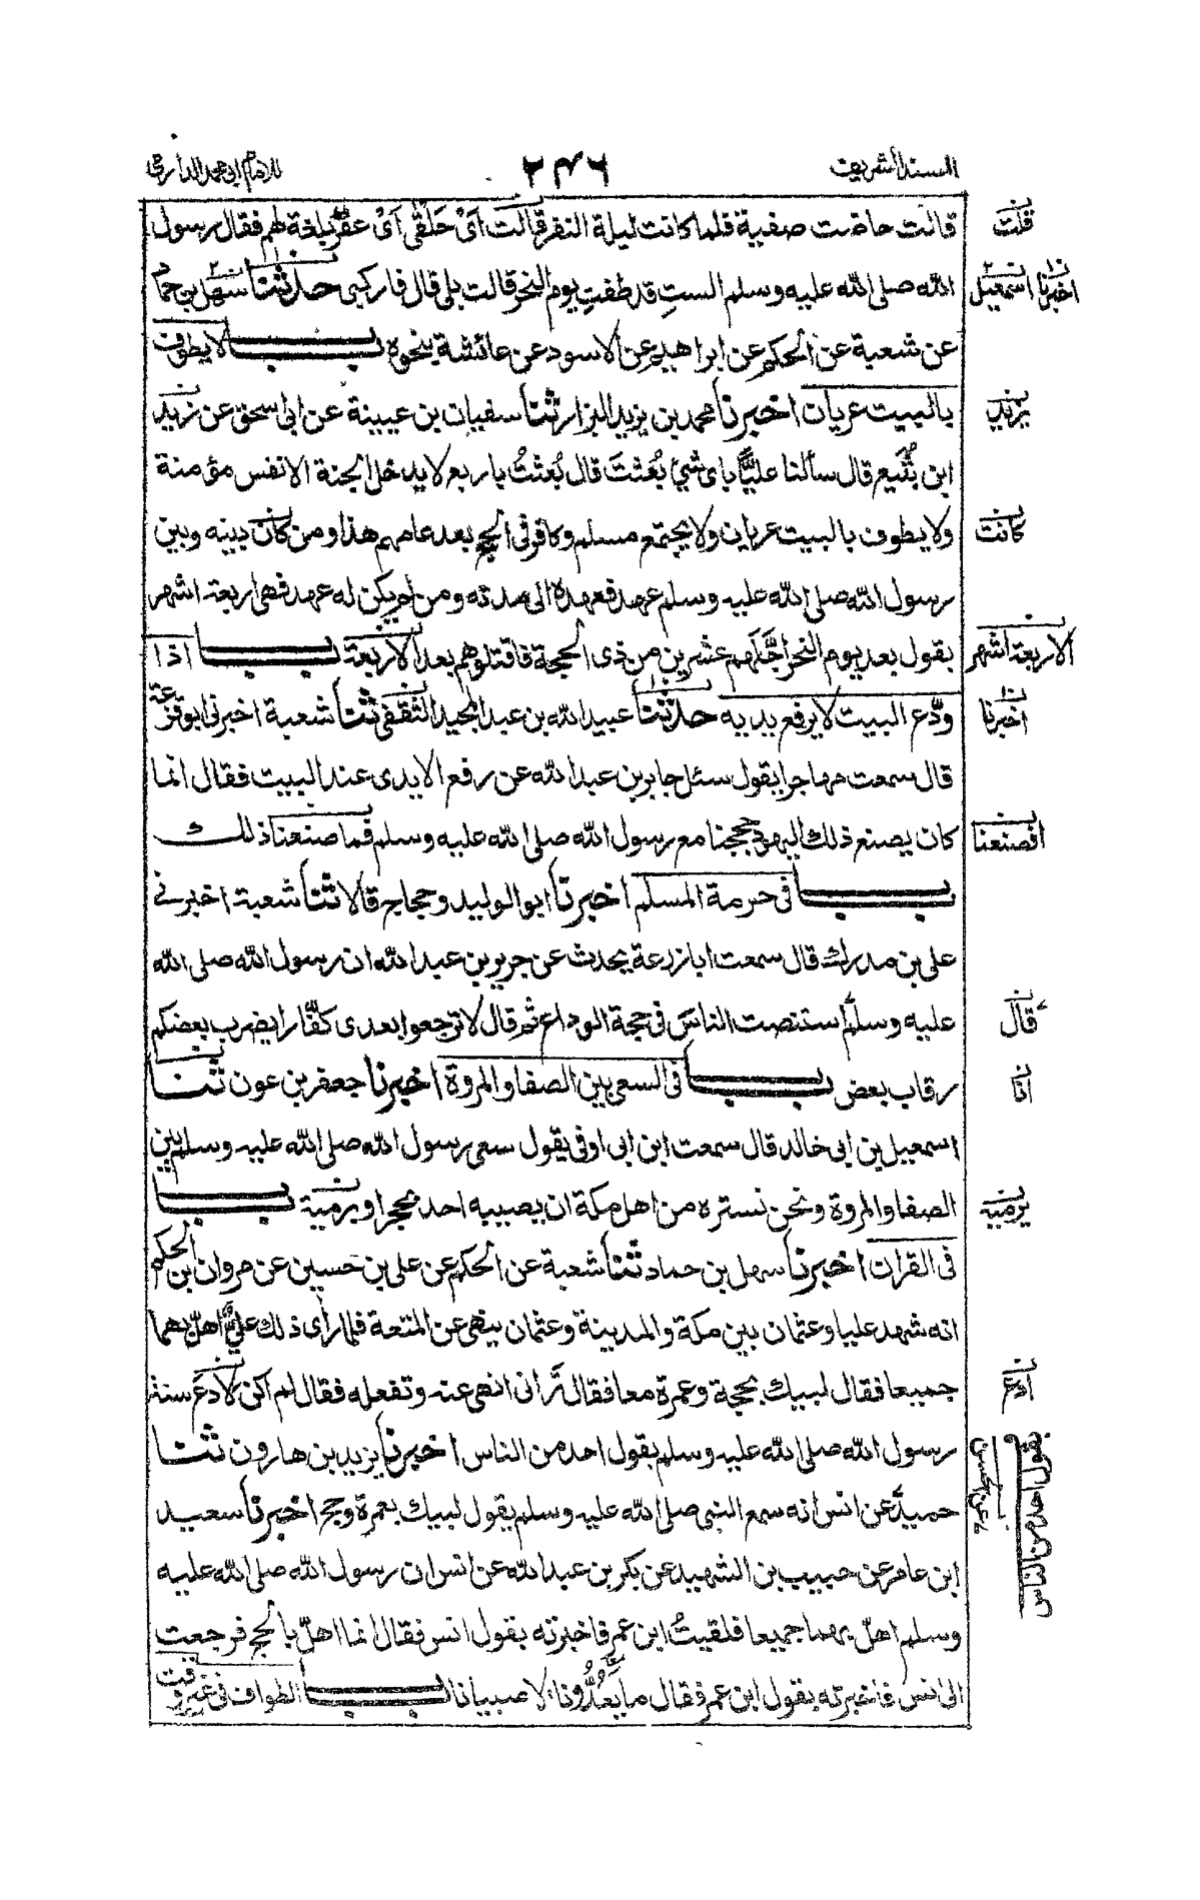 المسند الشريف
٢٤٦
للامام ابی محمد الدارمی
قالت حاضت صفية فلما كانت ليلة النفر قالت اَیْ حَلْقٰی اَیْ عَقْرٰی بلغة لهم فقال رسول
الله صلی الله عليه وسلم الستِ قد طفتِ يوم النحر قالت بلی قال فاركبی حدثنا سهل بن حماد
عن شعبة عن الحكم عن ابراهيم عن الاسود عن عائشة بنحوه باب لا يطوف
بالبيت عريان اخبرنا محمد بن يزيد البزار ثنا سفيان بن عيينة عن ابی اسحق عن زيد
ابن يُثَيع قال سألنا عليًّا بای شیء بُعثتَ قال بُعثتُ باربع لا يدخل الجنة الا نفس مؤمنة
ولا يطوف بالبيت عريان ولا يجتمع مسلم وكافر فی الحج بعد عامهم هذا ومن كان بينه وبين
رسول الله صلی الله عليه وسلم عهد فعهده الی مدته ومن لم يكن له عهد فهی اربعة اشهر
يقول بعد يوم النحر اَجَّلَهم عشرين من ذی الحجة فاقتلوهم بعد الاربعة باب اذا
ودّع البيت لا يرفع يديه حدثنا عبيد الله بن عبد المجيد الثقفی ثنا شعبة اخبرنی ابو قزعة
قال سمعت مهاجرا يقول سئل جابر بن عبد الله عن رفع الايدی عند البيت فقال انما
كان يصنع ذلك اليهود حججنا مع رسول الله صلی الله عليه وسلم فما صنعنا ذلك
باب فی حرمة المسلم اخبرنا ابو الوليد وحجاج قالا ثنا شعبة اخبرنی
علی بن مدرك قال سمعت ابا زرعة يحدث عن جرير بن عبد الله ان رسول الله صلی الله
عليه وسلم استنصت الناسَ فی حجة الوداع ثم قال لا ترجعوا بعدی كفّارا يضرب بعضكم
رقاب بعض باب فی السعی بين الصفا والمروة اخبرنا جعفر بن عون ثنا
اسمعيل بن ابی خالد قال سمعت ابن ابی اوفی يقول سعی رسول الله صلی الله عليه وسلم بين
الصفا والمروة ونحن نستره من اهل مكة ان يصيبه احد بحجر او برمية باب
فی القران اخبرنا سهل بن حماد ثنا شعبة عن الحكم عن علی بن حسين عن مروان بن الحكم
انه شهد عليا وعثمان بين مكة والمدينة وعثمان ينهی عن المتعة فلما رأی ذلك علیٌّ اهلّ بهما
جميعا فقال لبيك بحجة وعمرة معا فقال تَرانی انهی عنه وتفعله فقال لم اكن لاَدَع سنة
رسول الله صلی الله عليه وسلم بقول احد من الناس اخبرنا يزيد بن هارون ثنا
حميد عن انس انه سمع النبی صلی الله عليه وسلم يقول لبيك بعمرة وحج اخبرنا سعيد
ابن عامر عن حبيب بن الشهيد عن بكر بن عبد الله عن انس ان رسول الله صلی الله عليه
وسلم اهلّ بهما جميعا فلقيتُ ابن عمر فاخبرته بقول انس فقال انما اهلّ بالحج فرجعت
الی انس فاخبرته بقول ابن عمر فقال ما يَعُدُّونا الا صبيانا باب الطواف فی غير وقت
قلت
اخبرنا اسمعيل
يزيد
كانت
الاربعة اشهر
اخبرنا
افصنعنا
قال
انا
يرميه
ادع
بقول احد من الناس
عن الحسن